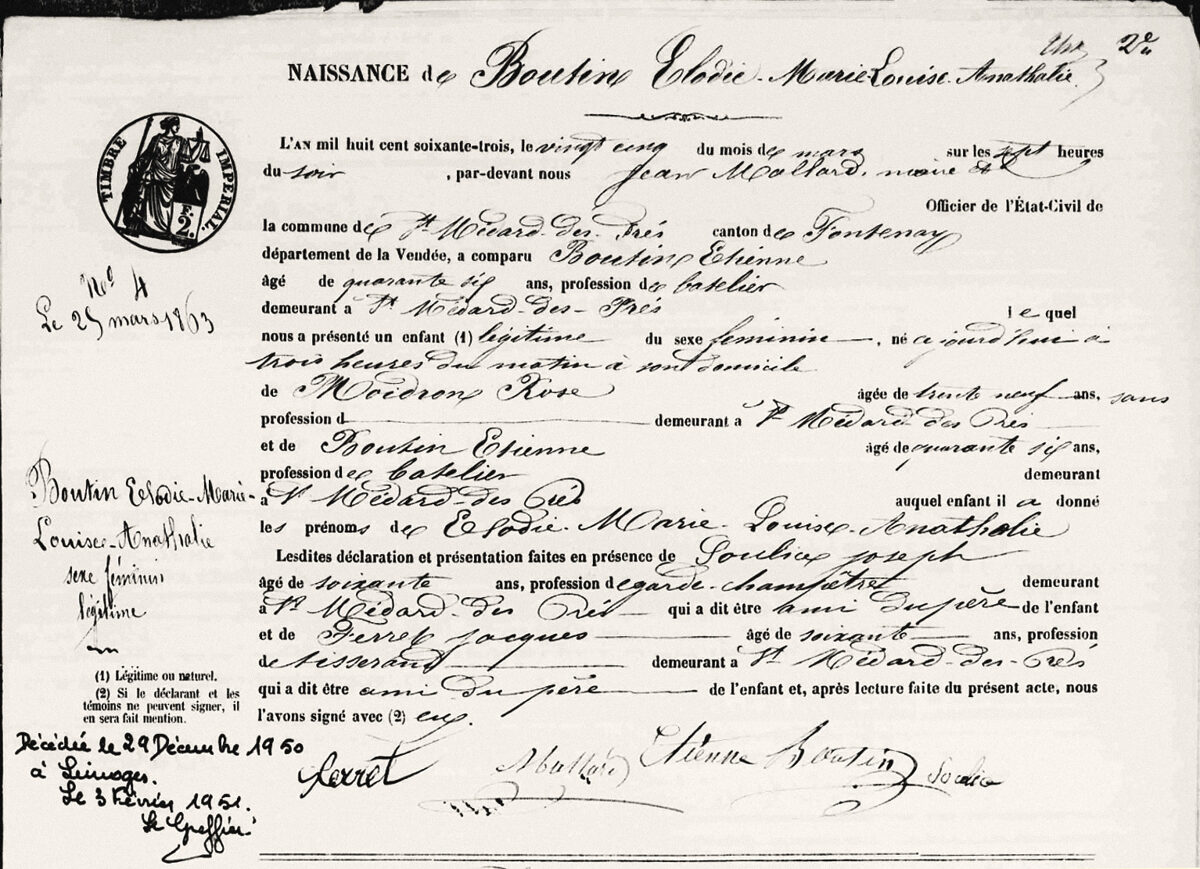 2e
NAISSANCE de Boutin Elodie-Marie-Louise-Anathalie
L'AN mil huit cent soixante-trois, le vingt cinq du mois de mars sur les sept heures
du soir, par-devant nous Jean Mallard, maire et
Officier de l'État-Civil de
la commune de St Médard-des-Prés canton de Fontenay
département de la Vendée, a comparu Boutin Etienne
âgé de quarante six ans, profession de batelier
demeurant à St Médard-des-Prés lequel
nous a présenté un enfant (1) légitime du sexe féminin, né ce jourd'hui à
trois heures du matin à son domicile
de Moidron Rose âgée de trente neuf ans, sans
profession d demeurant à St Médard des Prés
et de Boutin Etienne âgé de quarante six ans,
profession de batelier demeurant
à St Médard-des Prés auquel enfant il a donné
les prénoms de Elodie-Marie-Louise-Anathalie
Lesdites déclaration et présentation faites en présence de Soulice joseph
âgé de soixante ans, profession de garde-champêtre demeurant
à St Médard-des Prés qui a dit être ami du père de l'enfant
et de Ferret jacques âgé de soixante ans, profession
de tisserand demeurant à St Médard-des-Prés
qui a dit être ami du père de l'enfant et, après lecture faite du présent acte, nous
l'avons signé avec (2) eux.
Ferret Mallard Etienne Boutin Soulice
TIMBRE IMPERIAL.
F.
2.
No 4
Le 25 mars 1863
Boutin Elodie-Marie-
Louise-Anathalie
sexe féminin
légitime
(1) Légitime ou naturel.
(2) Si le déclarant et les
témoins ne peuvent signer, il
en sera fait mention.
Décédée le 29 Décembre 1950
à Limoges.
Le 3 Février 1951.
Le Greffier.